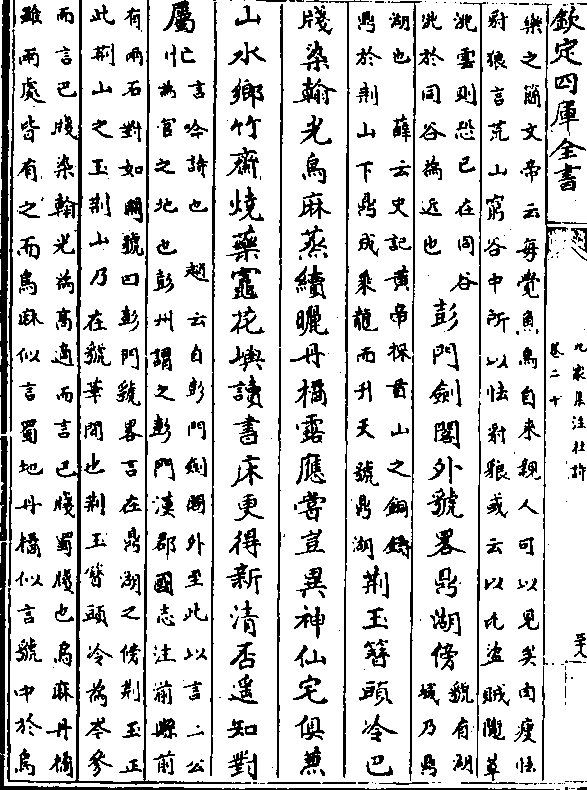 欽定四庫全書
九家集注杜詩
卷二十
樂之簡文帝云每覺魚鳥自来親人可以見矣肉瘦怯
豺狼言荒山窮谷中所以怯豺狼或云以比盜賊隴草
洮雲則恐已在同谷
洮於同谷為近也
彭門劍閣外虢畧鼎湖傍
虢有湖
城乃鼎
湖也 薛云史記黄帝採首山之銅鑄
鼎於荆山下鼎成乘龍而升天號鼎湖
荆玉簪頭冷巴
牋染翰光烏麻蒸續曬丹橘露應嘗豈異神仙宅俱兼
山水鄉竹齋燒藥竈花嶼讀書床更得新清否遥知對
屬忙
言吟詩也 趙云自彭門劍閣外至此以言二公
為官之地也彭州謂之彭門漢郡國志注湔縣前
有兩石對如闕號曰彭門虢畧言在鼎湖之傍荆玉正
此荆山之玉荆山乃在虢華間也荆玉簪頭冷為岑參
而言巴牋染翰光為高適而言巴牋蜀牋也烏麻丹橘
雖兩處皆有之而烏麻似言蜀地丹橘似言虢中於烏